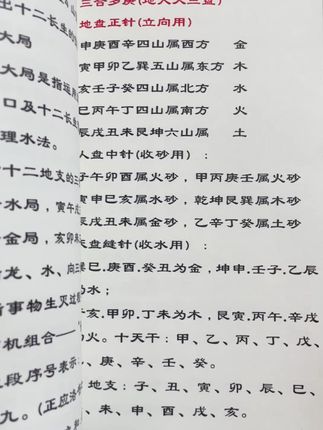 出十二长生的
大局
大局是指运
口及十二长生
理水法。
十二地支的三
水局，寅午
金局，亥卯
龙、水、向三
事物生灭过
机组合——
段序号表示：
九。(正应洛
三合罗庚(地人天三盘)
地盘正针(立向用)
申庚酉辛四山属西方 金
寅甲卯乙巽五山属东方 木
亥壬子癸四山属北方 水
巳丙午丁四山属南方 火
辰戌丑未艮坤六山属 土
人盘中针(收砂用)：
子午卯酉属火砂，甲丙庚壬属火砂
寅申巳亥属水砂，乾坤艮巽属木砂
辰戌丑未属金砂，乙辛丁癸属土砂
天盘缝针(收水用)：
巽巳.庚酉.癸丑为金，坤申.壬子.乙辰
为水；
亥.甲卯.丁未为木，艮寅.丙午.辛戌
为火。十天干：甲、乙、丙、丁、戊、
、庚、辛、壬、癸。
地支：子、丑、寅、卯、辰、巳、
未、申、酉、戌、亥。